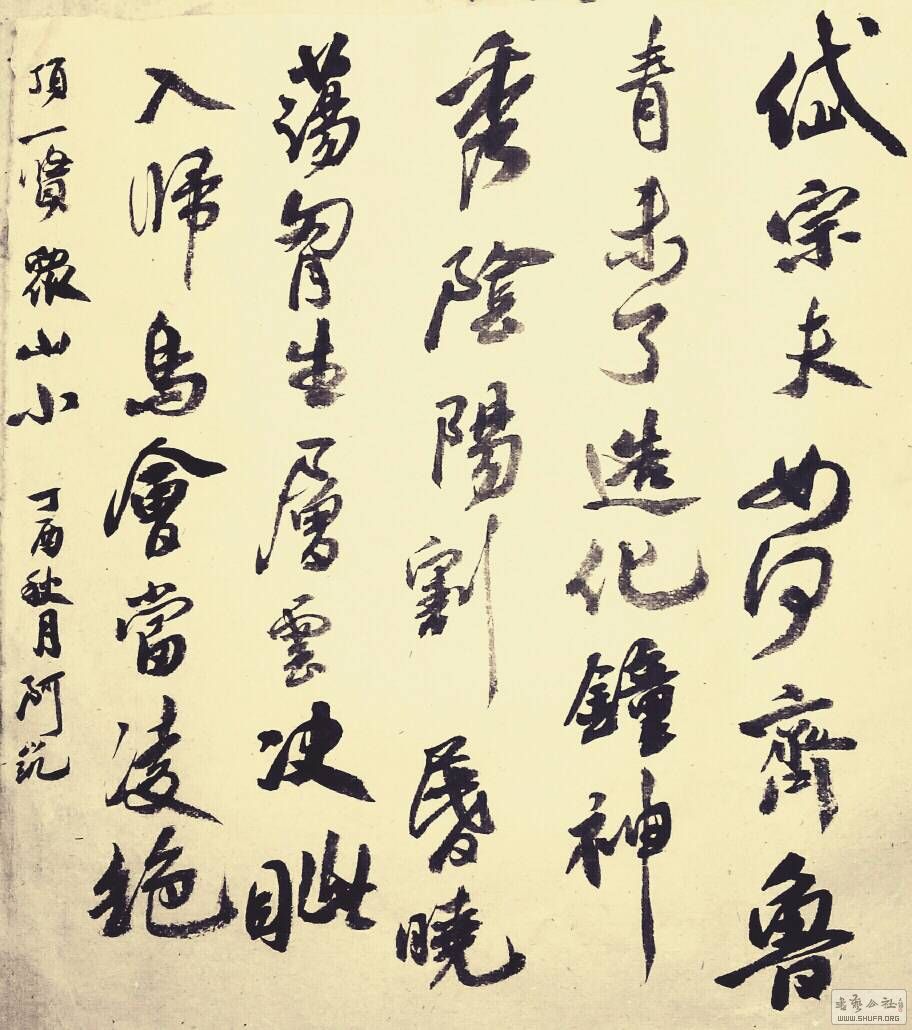 岱宗夫如何齊魯
青未了造化鐘神
秀陰陽割昬曉
蕩胷生層雲决眦
入帰鳥會當凌絶
頂一覽衆山小 丁酉秋月阿
WWW.SHUFA.ORG